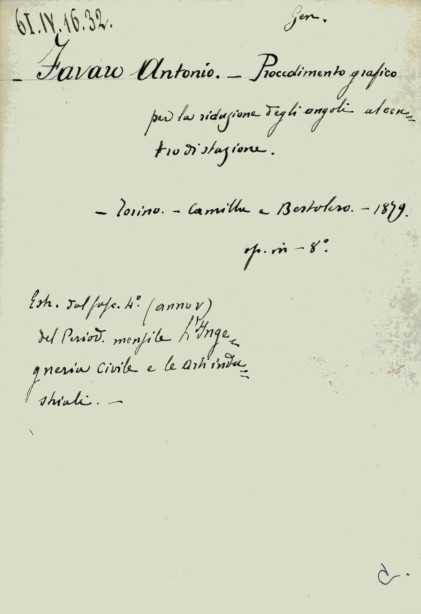 61.IV.16.32.
Gen.
- Favaro Antonio. - Procedimento grafico
per la riduzione degli angoli al cen=
tro di stazione.
- Torino. - Camilla e Bertolero. - 1879.
op. in - 8°.
Estr. dal fasc. 4° (anno V)
del Period. mensile L'Inge=
gneria Civile e le arti indu=
striali. -